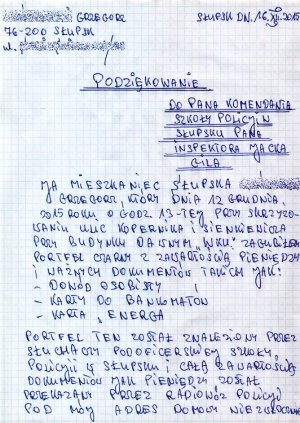 GRZEGORZ
SŁUPSK DN. 16.XII.2015
76-200 SŁUPSK
ul.
PODZIĘKOWANIE
DO PANA KOMENDANTA
SZKOŁY POLICYJ W
SŁUPSKU PANA
INSPEKTORA JACKA
GILA
JA MIESZKANIEC SŁUPSKA
GRZEGORZ, KTÓRY DNIA 12 GRUDNIA
2015 ROKU O GODZ 13-TEJ PRZY SKRZYŻO
WANIU ULIC KOPERNIKA I SIENKIEWICZA
PRZY BUDYNKU DAWNYM "WKU" ZAGUBIŁEM
PORTFEL CZARNY Z ZAWARTOŚCIĄ PIENIĘDZY
I WAŻNYCH DOKUMENTÓW TAKICH JAK:
- DOWÓD OSOBISTY
- KARTY DO BANKOMATÓW
- KARTA "ENERGA"
PORTFEL TEN ZOSTAŁ ZNALEZIONY PRZEZ
SŁUCHACZY PODOFICERSKIEJ SZKOŁY
POLICYJI W SŁUPSKU I CAŁĄ ZAWARTOŚCIĄ
DOKUMENTÓW JAK PIENIĘDZY ZOSTAŁ
PRZEKAZANY PRZEZ RADIOWÓZ POLICYJ
POD MÓJ ADRES DOMOWY NIEZWŁOCZNIE